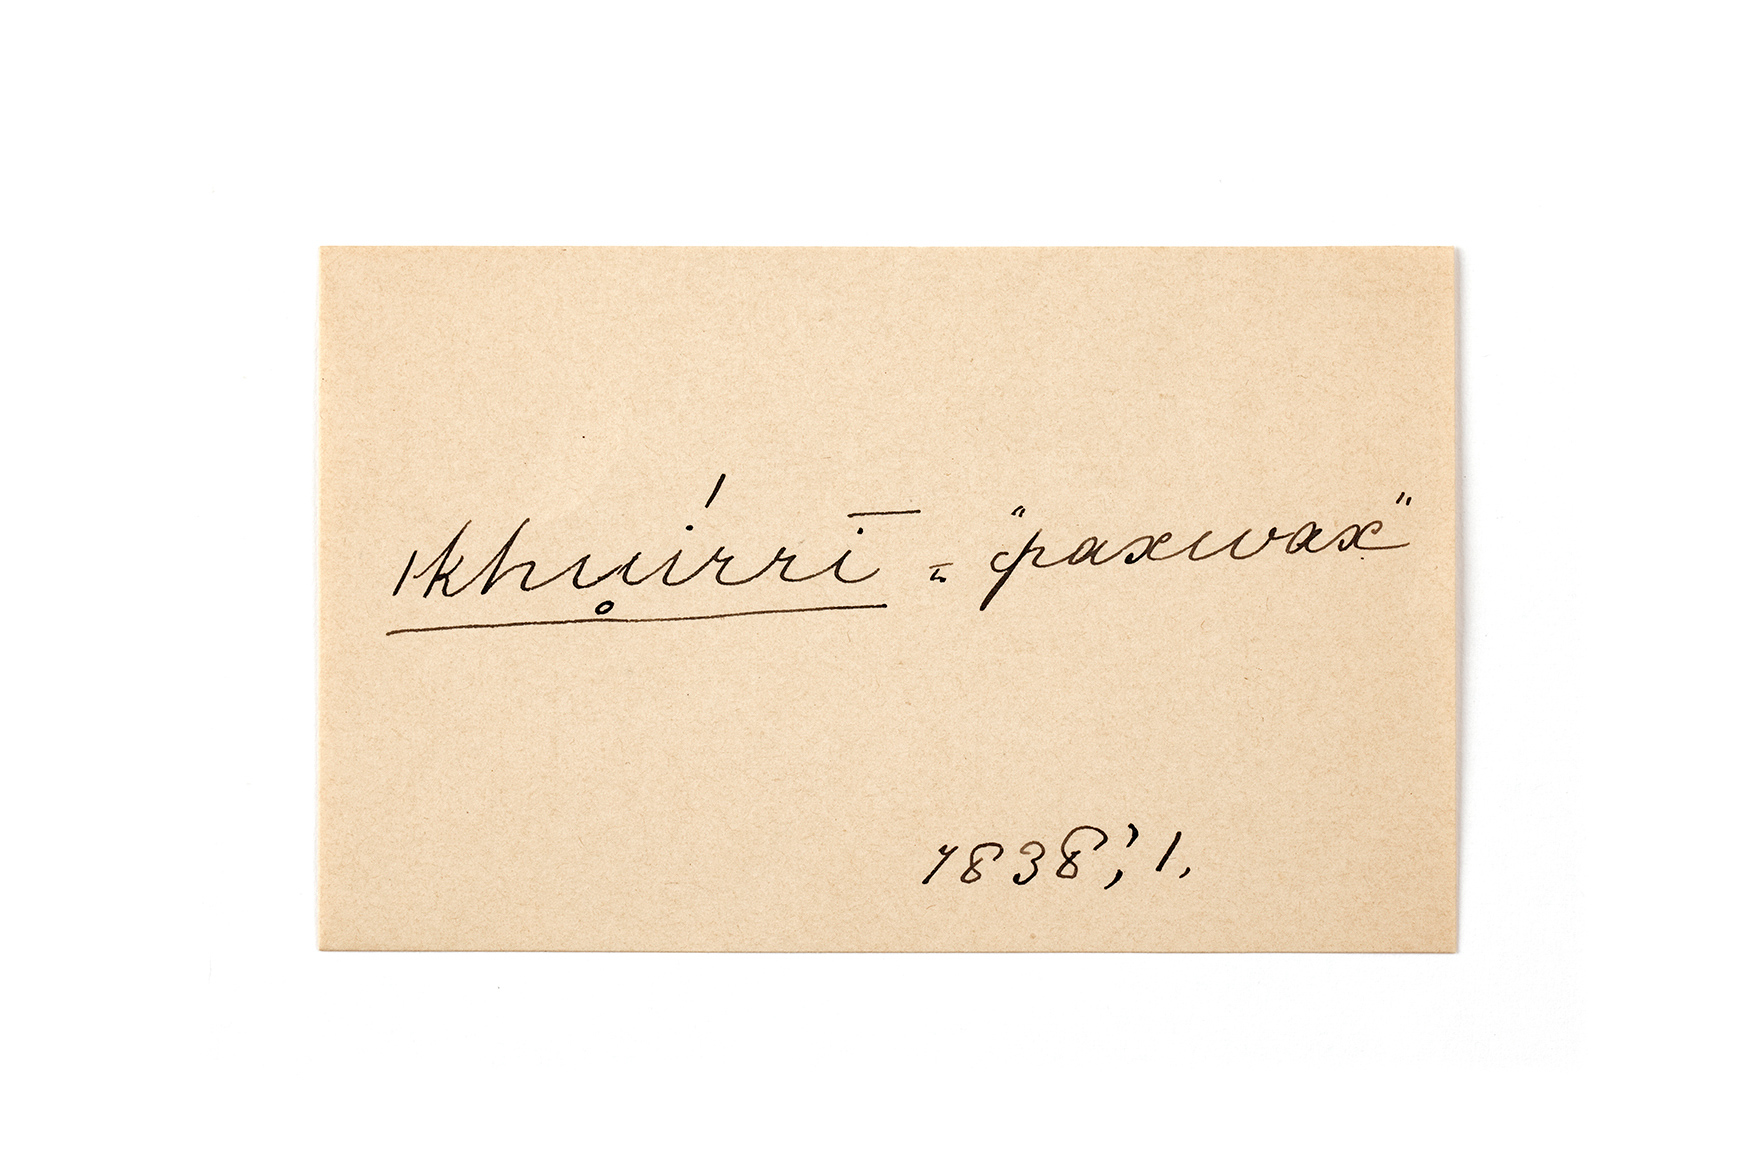 |khu̥írrī = "paxwax"
1838', 1.